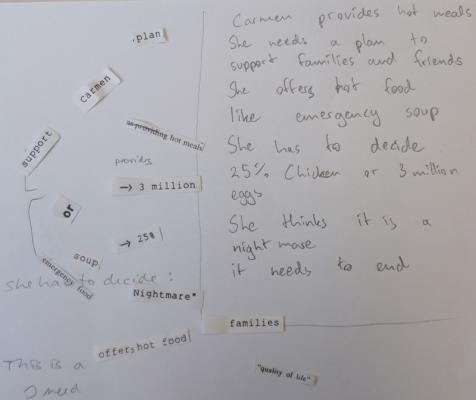 plan
Carmen
support
as providing hot meals
provides
→ 3 million
or
→ 25%
soup
emergency food
She has to decide:
Nightmare"
families
offers hot food
This is a
I need
"quality of life"
Carmen provides hot meals
She needs a plan to
support families and friends
She offers hot food
like emergency soup
She has to decide
25% Chicken or 3 million
eggs
She thinks it is a
nightmare
it needs to end